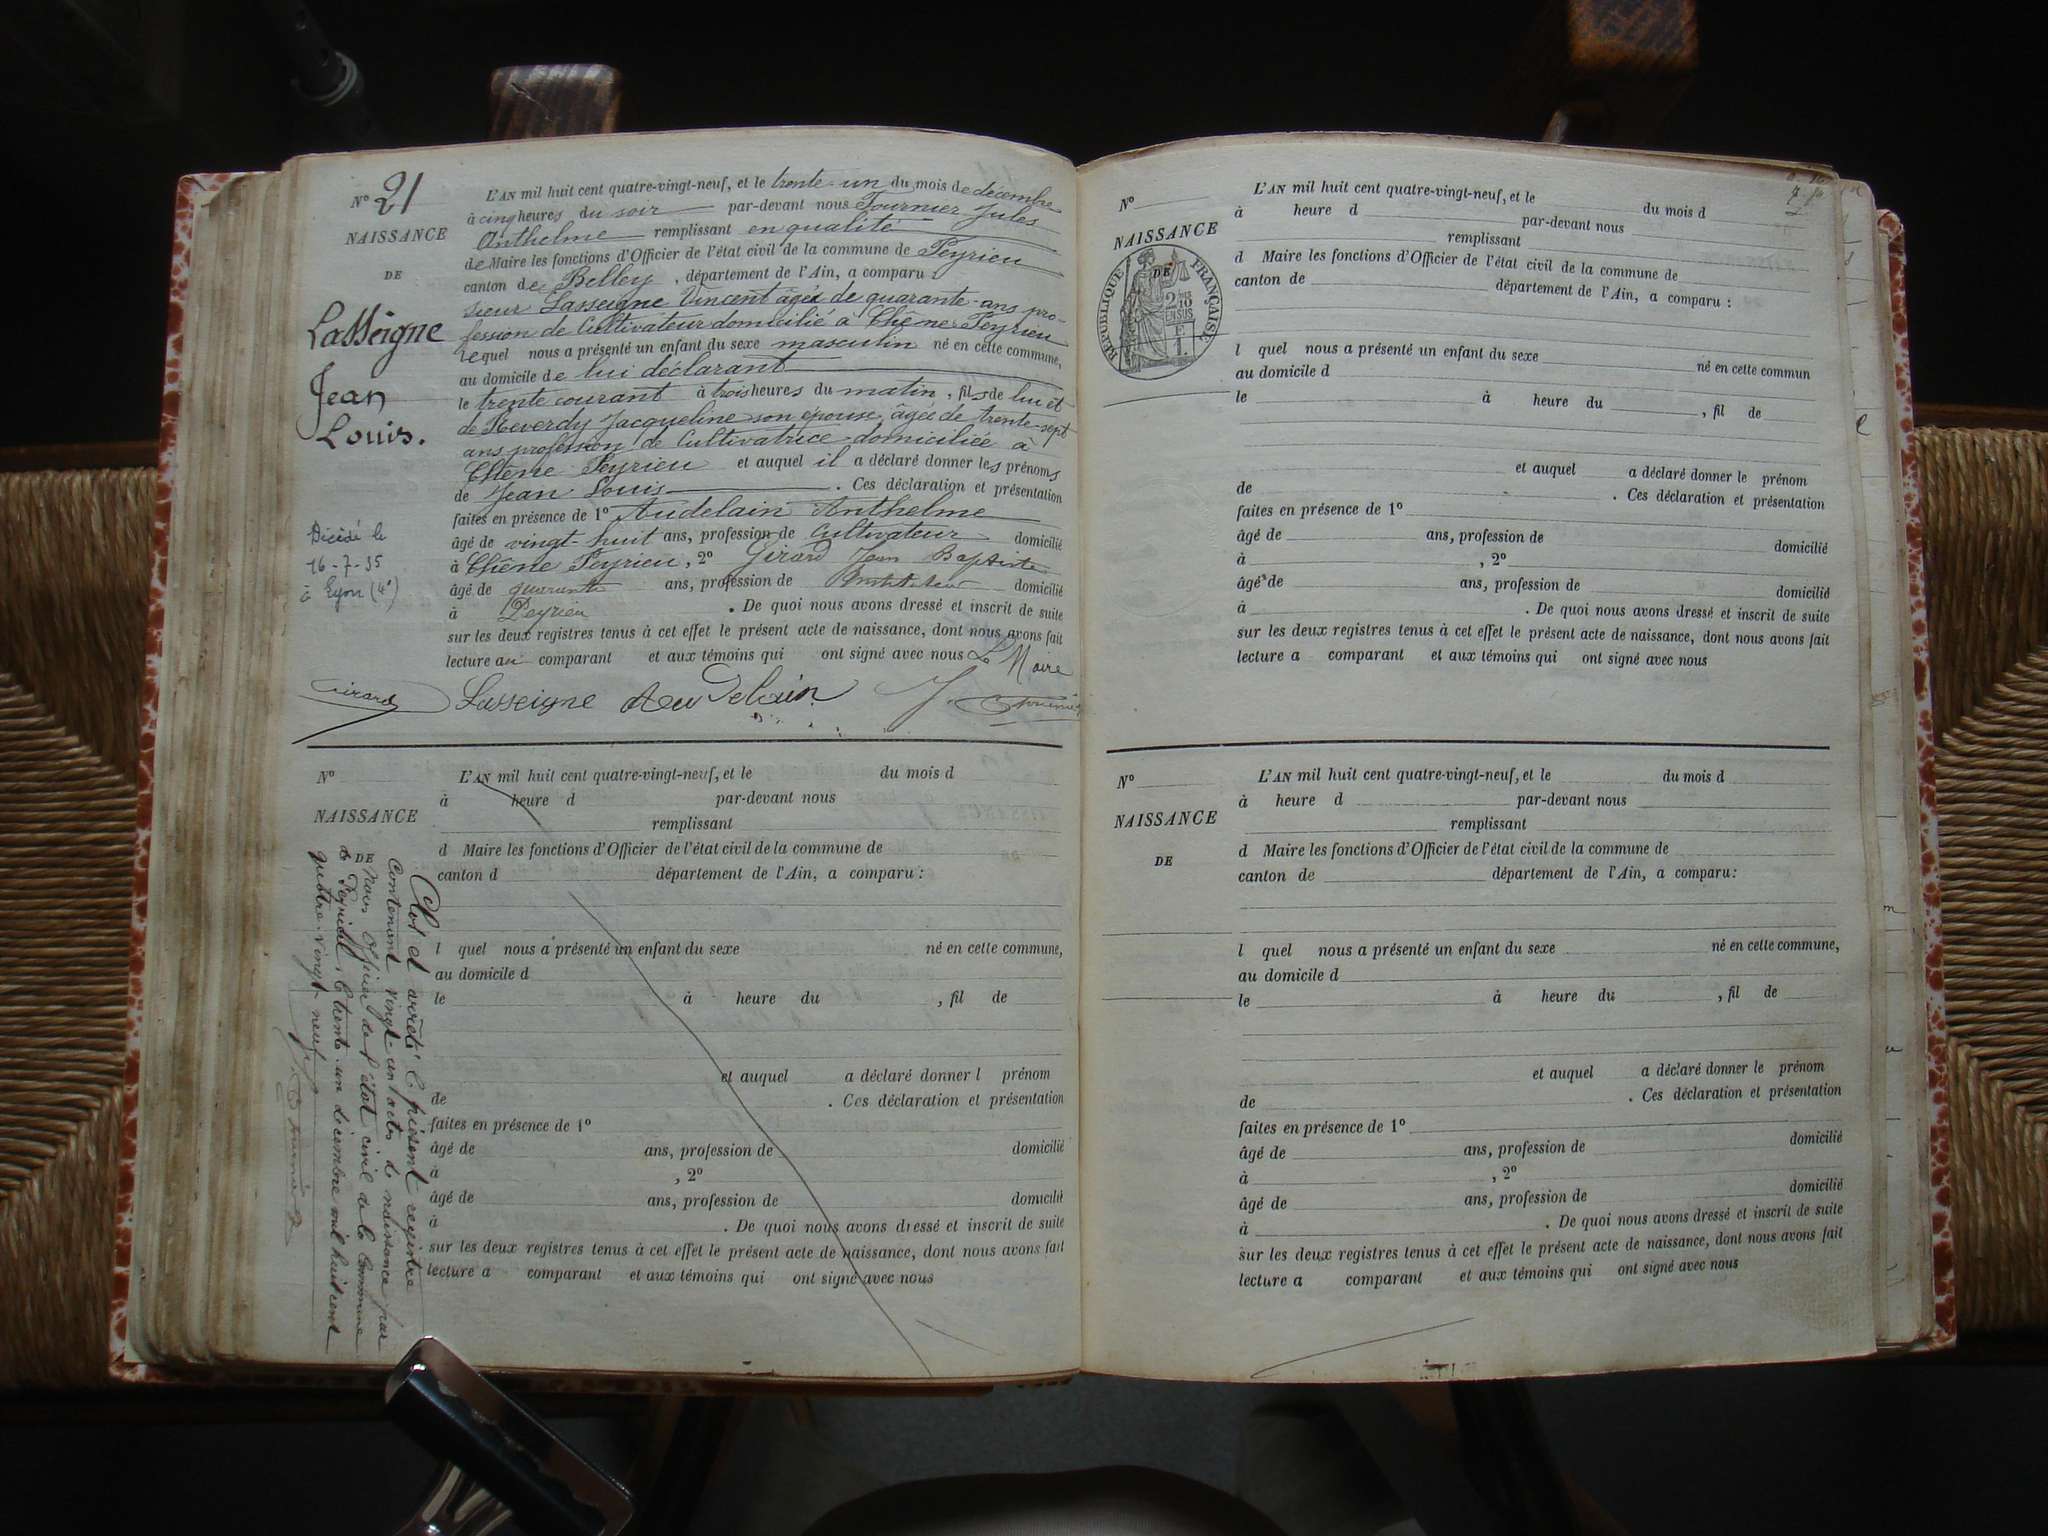 N° 21
NAISSANCE
DE
Lasseigne
Jean
Louis.
Décédé le
16-7-35
à Lyon (4e)
L'AN mil huit cent quatre-vingt-neuf, et le trente-un du mois de décembre
à cinq heures du soir par-devant nous Fournier Jules
Anthelme remplissant en qualité
de Maire les fonctions d'Officier de l'état civil de la commune de Peyrieu
canton de Belley, département de l'Ain, a comparu
sieur Lasseigne Vincent âgé de quarante-ans pro-
fession de Cultivateur domicilié à Chêne Peyrieu
lequel nous a présenté un enfant du sexe masculin né en cette commune,
au domicile de lui déclarant
le trente courant à trois heures du matin, fils de lui et
de Reverdy Jacqueline son épouse, âgée de trente-sept
ans profession de Cultivatrice domiciliée à
Chêne Peyrieu et auquel il a déclaré donner les prénoms
de Jean Louis. Ces déclaration et présentation
faites en présence de 1° Audelain Anthelme
âgé de vingt-huit ans, profession de Cultivateur domicilié
à Chêne Peyrieu, 2° Girard Jean Baptiste
âgé de quarante ans, profession de Instituteur domicilié
à Peyrieu. De quoi nous avons dressé et inscrit de suite
sur les deux registres tenus à cet effet le présent acte de naissance, dont nous avons fait
lecture au comparant et aux témoins qui ont signé avec nous Le Maire
Girard Lasseigne Audelain J. Fournier
N°
NAISSANCE
DE
L'AN mil huit cent quatre-vingt-neuf, et le du mois d
à heure d par-devant nous
remplissant
d Maire les fonctions d'Officier de l'état civil de la commune de
canton d département de l'Ain, a comparu :
l quel nous a présenté un enfant du sexe né en cette commune,
au domicile d
le à heure du , fil de
et auquel a déclaré donner l prénom
de . Ces déclaration et présentation
faites en présence de 1°
âgé de ans, profession de domicilié
à , 2°
âgé de ans, profession de domicilié
à . De quoi nous avons dressé et inscrit de suite
sur les deux registres tenus à cet effet le présent acte de naissance, dont nous avons fait
lecture a comparant et aux témoins qui ont signé avec nous
Clos et arrêté le présent registre
Contenant vingt-un actes de naissance par
Nous Officier de l'état civil de la Commune
de Peyrieu, le trente-un décembre mil huit cent
quatre-vingt-neuf
J. Fournier
N°
NAISSANCE
DE
RÉPUBLIQUE FRANÇAISE
2/10
EN SUS
L'AN mil huit cent quatre-vingt-neuf, et le du mois d
à heure d par-devant nous
remplissant
d Maire les fonctions d'Officier de l'état civil de la commune de
canton de département de l'Ain, a comparu :
l quel nous a présenté un enfant du sexe né en cette commun
au domicile d
le à heure du , fil de
et auquel a déclaré donner le prénom
de . Ces déclaration et présentation
faites en présence de 1°
âgé de ans, profession de domicilié
à , 2°
âgé de ans, profession de domicilié
à . De quoi nous avons dressé et inscrit de suite
sur les deux registres tenus à cet effet le présent acte de naissance, dont nous avons fait
lecture a comparant et aux témoins qui ont signé avec nous
N°
NAISSANCE
DE
L'AN mil huit cent quatre-vingt-neuf, et le du mois d
à heure d par-devant nous
remplissant
d Maire les fonctions d'Officier de l'état civil de la commune de
canton de département de l'Ain, a comparu:
l quel nous a présenté un enfant du sexe né en cette commune,
au domicile d
le à heure du , fil de
et auquel a déclaré donner le prénom
de . Ces déclaration et présentation
faites en présence de 1°
âgé de ans, profession de domicilié
à , 2°
âgé de ans, profession de domicilié
à . De quoi nous avons dressé et inscrit de suite
sur les deux registres tenus à cet effet le présent acte de naissance, dont nous avons fait
lecture a comparant et aux témoins qui ont signé avec nous